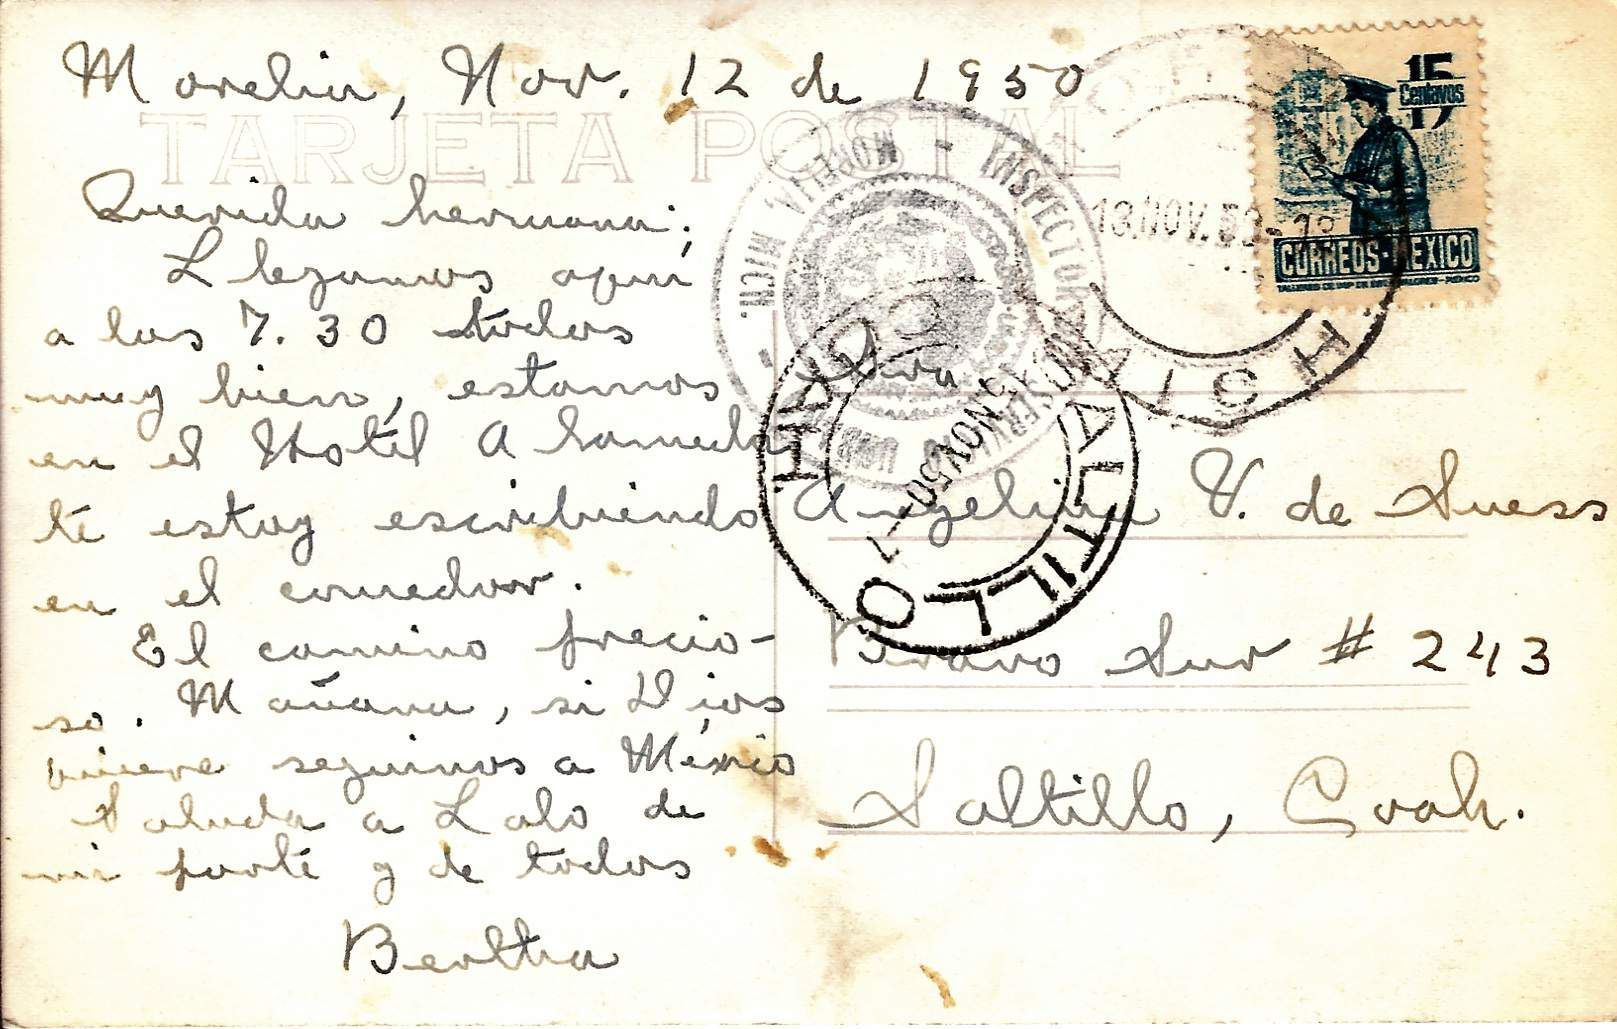 Morelia, Nov. 12 de 1950
TARJETA POSTAL
Querida hermana;
Llegamos aqui
a las 7.30 todos
muy bien, estamos
en el Hotel Alameda
te estoy escribiendo
en el comedor.
El camino precio-
so. Mañana, si Dios
quiere seguimos a México
Saluda a Lalo de
mi parte y de todos
Bertha
15
Centavos
CORREOS-MEXICO
13.NOV.50-18
MORELIA, MICH. - INSPECTOR
SALTILLO COAH
15 NOV.50-7
Sra
Angelina V. de Suess
Bravo Sur # 243
Saltillo, Coah.